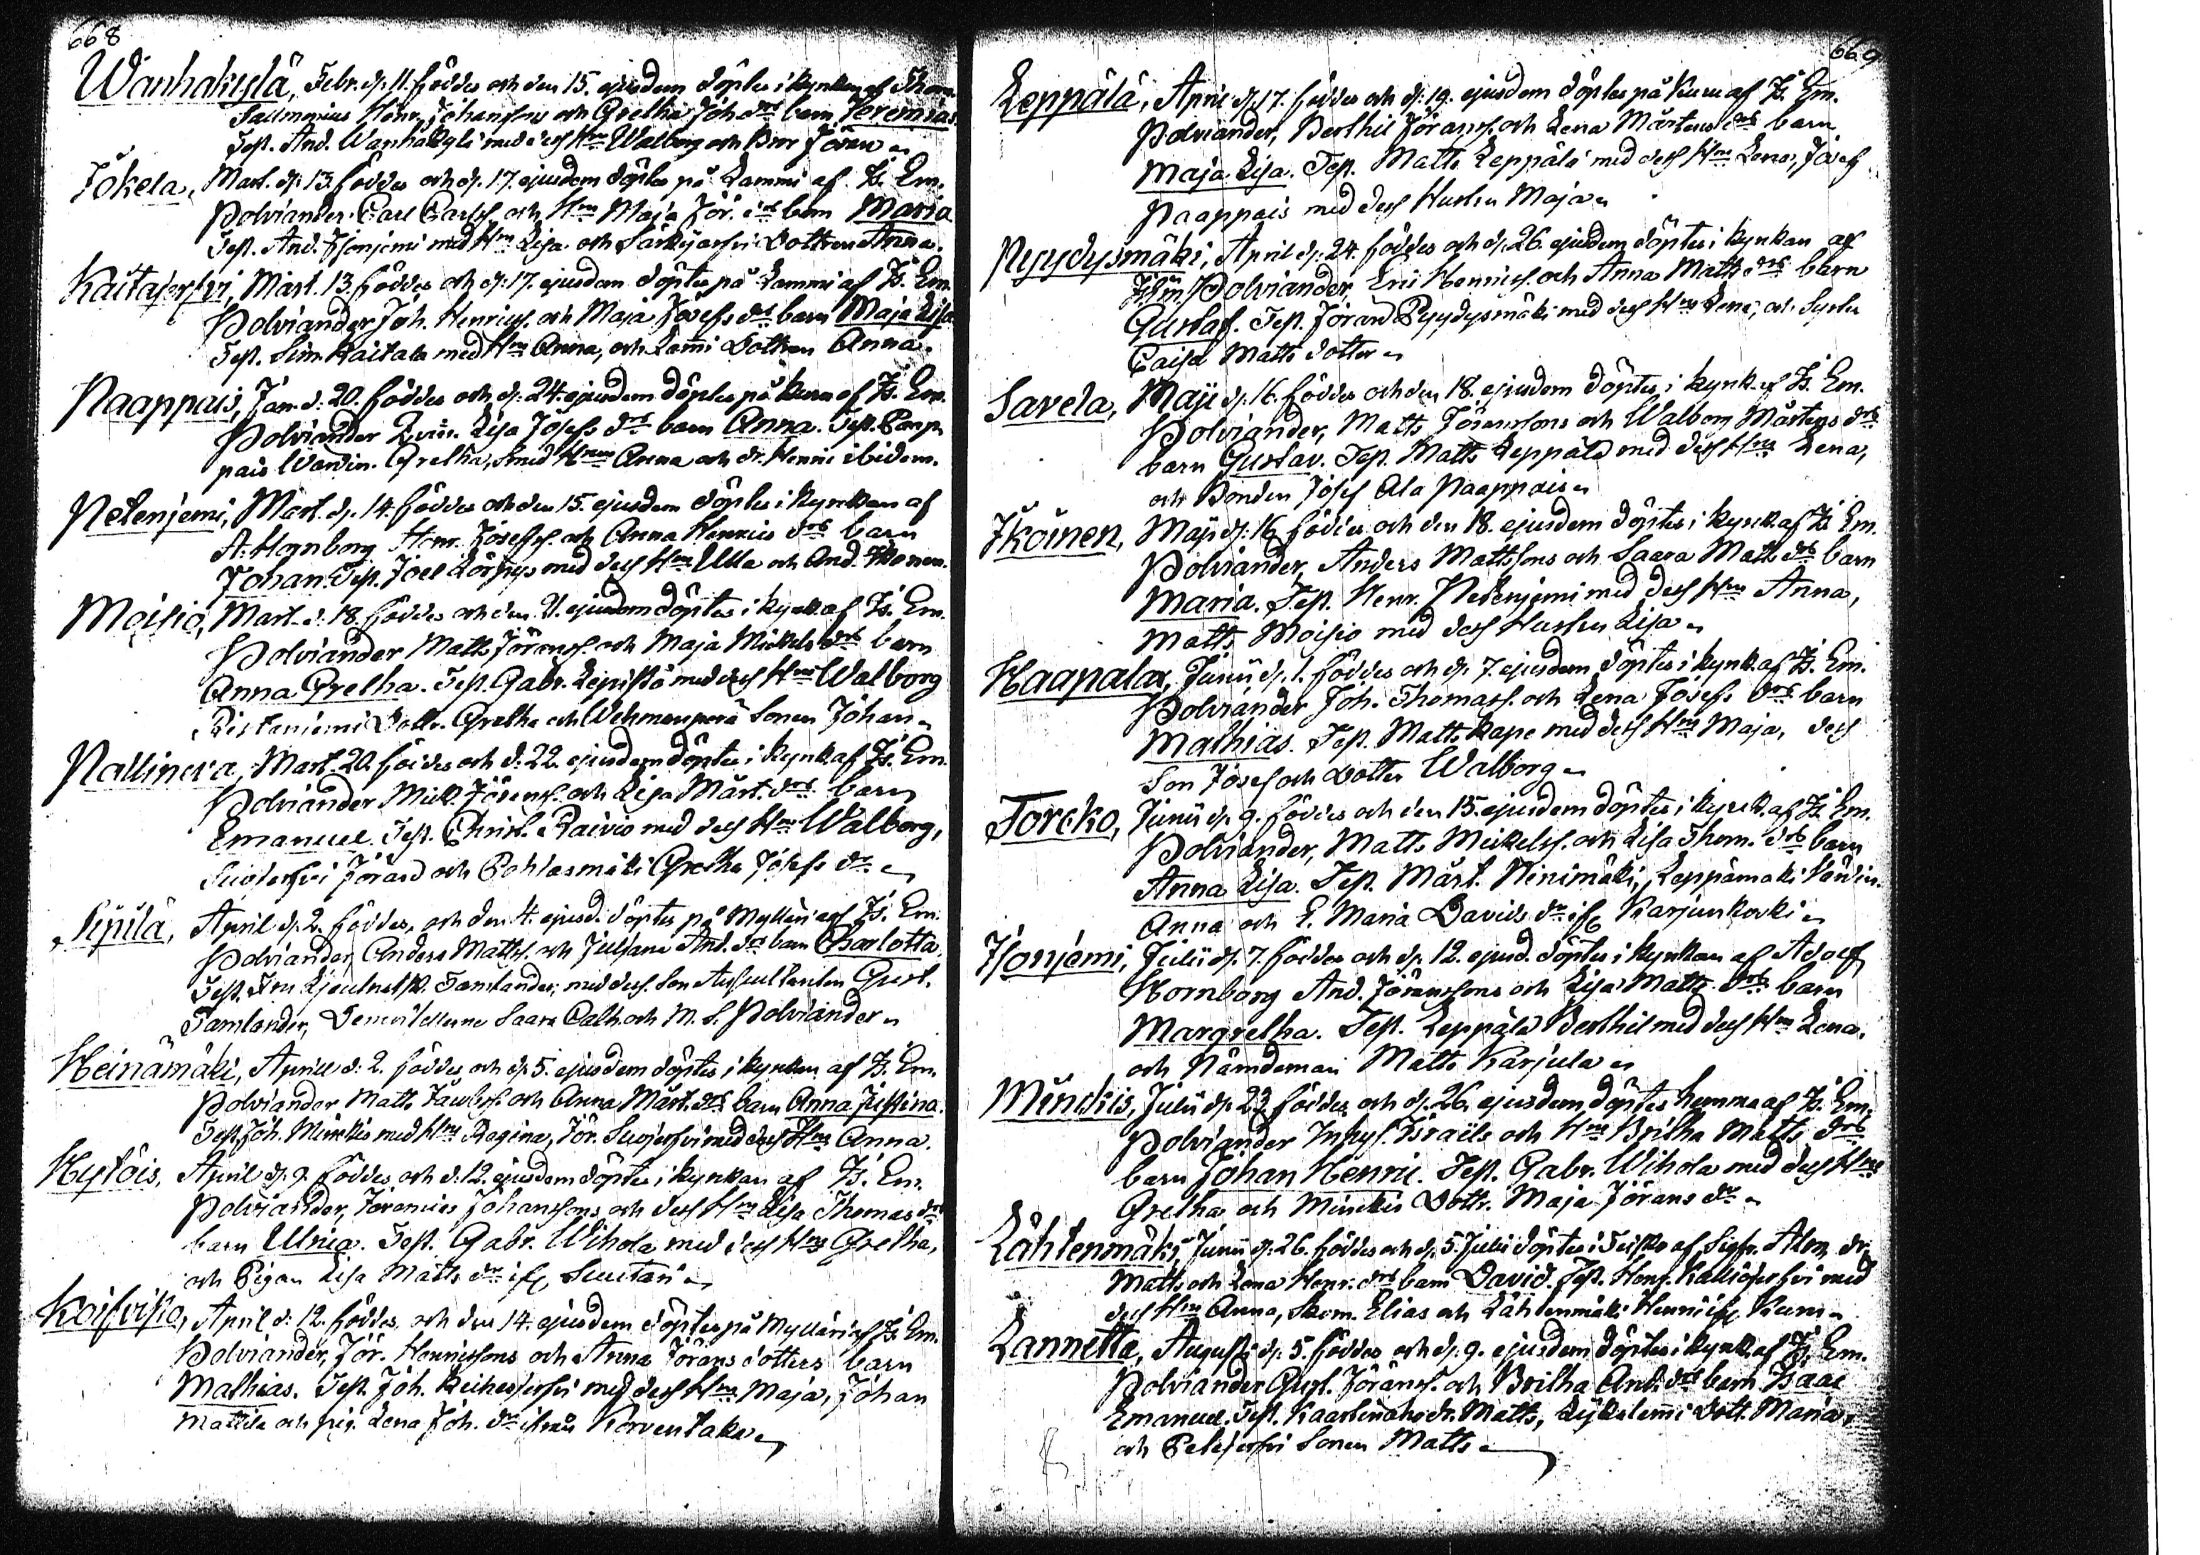 668
Wanhakylä, Febr. d. 11. föddes och den 15. ejusdem döptes i kyrkan af Thom.
Sacimonius Henr. Johanssons och Gretha Joh. drs barn Jeremias.
Test. And. Wanhakylä med dess Hru Walborg och Bror Jöran
Jokela, Mart. d. 13. föddes och d. 17. ejusdem döptes på Lammi af Js. Em.
Polviander. Carl Carlss. och Hru Maja Jör. drs barn Maria
Test. And. Isonjemi med Hru Lisa och Särkijerfvi Dottren Anna.
Kaitajerfvi, Mart. 13. föddes och d. 17. ejusdem döptes på Lammi af Js. Em.
Polviander Joh. Henrics. och Maja Josefs drs barn Maja Lisa
Test. Sim. Kaitala med Hru Anna, och Lammi Dottren Anna.
Paappais, Jan. d. 20. föddes och d. 24. ejusdem döptes på Kuru af Js. Em.
Polviander Qvin. Lisa Josefs drs barn Anna. Test. Paap-
pais Wärdin. Gretha, Smed Hrun Anna och dr. Henric ibidem.
Petenjemi, Mart. d. 14. föddes och den 15. ejusdem döptes i kyrkan af
A. Hornborg Henr. Josefss. och Anna Henrics drs barn
Johan. Test. Joel Lörpys med dess Hru Ulla och And. Ikonen.
Moisio, Mart. d. 18. föddes och den 21. ejusdem döptes i kyrk. af Js. Em.
Polviander Matts Jöranss. och Maja Mickels drs barn
Anna Gretha. Test. Gabr. Lepistö med dess Hru Walborg
Ristaniemi Dottr. Gretha och Wehmanperä Sonen Johan
Pallinera, Mart. 20. föddes och d. 22. ejusdem döptes i kyrk. af Js. Em.
Polviander Mick. Jöranss. och Lisa Mårt. drs barn
Emanuel. Test. Christ. Raivio med dess Hru Walborg,
Suojerfvi Jöran och Pohlasmäki Gretha Josefs dr
Sipilä, April d. 2. föddes, och den 4. ejusd. döptes på Mylläri af Js. Em.
Polviander, Anders Matts. och Juliana And. dr barn Charlotta.
Test. Herr Tamlander, med dess Son Auscultanten Gust.
Tamlander, Demoisellerne Saara Cath. och M. S. Polviander
Heinämäki, April d. 2. föddes och d. 5. ejusdem döptes i kyrkan af Js. Em.
Polviander Matts och Anna Mårt. drs barn Anna Justina.
Test. Joh. Minckis med Hru Regina, Jör. Suojerfvi med dess Hru Anna.
Hystöis, April d. 9. föddes och d. 12. ejusdem döptes i kyrkan af Js. Em.
Polviander, Jeremias Johanssons och dess Hru Lisa Thomas drs
barn Ulrica. Test. Gabr. Wihola med dess Hru Gretha,
och Pigan Lisa Matts dr if.
Koifvisto, April d. 12. föddes och den 14. ejusdem döptes på Mylläri af Js. Em.
Polviander, Jör. Henricssons och Anna Jörans dotters barn
Mathias. Test. Joh. Keihesjerfvi med dess Hru Maja, Johan
Mattila och pig. Lena Joh. dr ifrån Korventaka
669
Leppälä, April d. 17. föddes och d. 19. ejusdem döptes på Kuru af Js. Em.
Polviander, Berthil Jöranss. och Lena Mårtens drs barn
Maja Lisa. Test. Matts Leppälä med dess Hru Lena, Josef
Paappais med dess Hustru Maja
Pyydysmäki, April d. 24. föddes och d. 26. ejusdem döptes i kyrkan af
Js. Em. Polviander, Eric Henrics. och Anna Matts drs barn
Gustaf. Test. Jöran Pyydysmäki med dess Hru Lena, och Syster
Caisa Matts dotter
Savela, Maji d. 16. föddes och den 18. ejusdem döptes i kyrk. af Js. Em.
Polviander, Matts Jöranssons och Walborg Mårtens drs
barn Gustav. Test. Matts Leppälä med dess Hru Lena,
och Bonden Josef Ala Paappais
Ikoinen, Maji d. 16. föddes och den 18. ejusdem döptes i kyrk. af Js. Em.
Polviander, Anders Mattssons och Saara Matts drs barn
Maria. Test. Henr. Petenjemi med dess Hru Anna,
Matts Moisio med dess Hustru Lisa
Haapala, Junii d. 1. föddes och d. 7. ejusdem döptes i kyrk. af Js. Em.
Polviander Joh. Thomass. och Lena Josefs drs barn
Mathias. Test. Matts Kape med dess Hru Maja, dess
Son Josef och Dotter Walborg
Torcko, Junii d. 9. föddes och den 15. ejusdem döptes i kyrk. af Js. Em.
Polviander, Matts Mickelss. och Lisa Thom. drs barn
Anna Lisa. Test. Mårt. Ninimäki, Leppämäki Värdin.
Anna och E. Maria Davids dr if. Karjunkoski
Isonjemi, Julii d. 7. föddes och d. 12. ejusd. döptes i kyrkan af Adolf
Hornborg And. Jöranssons och Lisa Matts drs barn
Margretha. Test. Leppälä Berthil med dess Hru Lena.
och Nämdeman Matts Karjula
Minckis, Julii d. 23. föddes och d. 26. ejusdem döptes hemma af Js. Em.
Polviander Inhys. Israels och Hru Britha Matts drs
barn Johan Henric. Test. Gabr. Wihola med dess Hru
Gretha och Minckis Dottr. Maja Jörans dr
Lähtenmäki, Junii d. 26. föddes och d. 5. Julii döptes i Teisko af Sigfr. Alm, dr.
Matts och Lena Henr. drs barn David. Test. Henr. Kallojerfvi med
dess Hru Anna, Skom. Elias och Lähtenmäki Henric if. Kuru
Lannetta, Augusti d. 5. föddes och d. 9. ejusdem döptes i kyrk. af Js. Em.
Polviander Gust. Jöranss. och Britha And. drs barn Isaac
Emanuel. Test. dr. Matts, Dott. Maria,
och Pelejerfvi Sonen Matts